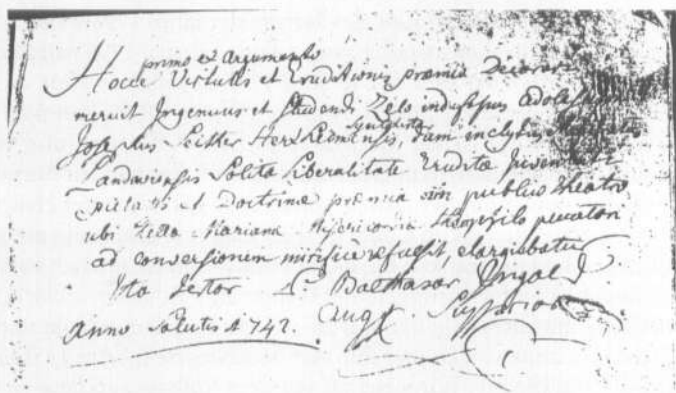 primo ex Argumento
Hocce Virtutis et Eruditionis praemio Decorari
meruit Ingenuus et studendi Zelo industrius adolescens
Syntaxista
Josephus Seither Herxheimensis, dum inclytus
Landaviensis Solita Liberalitate Erudita Juventuti
pietatis et Doctrinae praemia in publico theatro
ubi Mariana Misericordia Theophilo peccatori
ad conversionem mirifice refulsit, elargiebatur
Ita testor P. Balthasar Ingol
Aug. Supprior
Anno Salutis 1742.